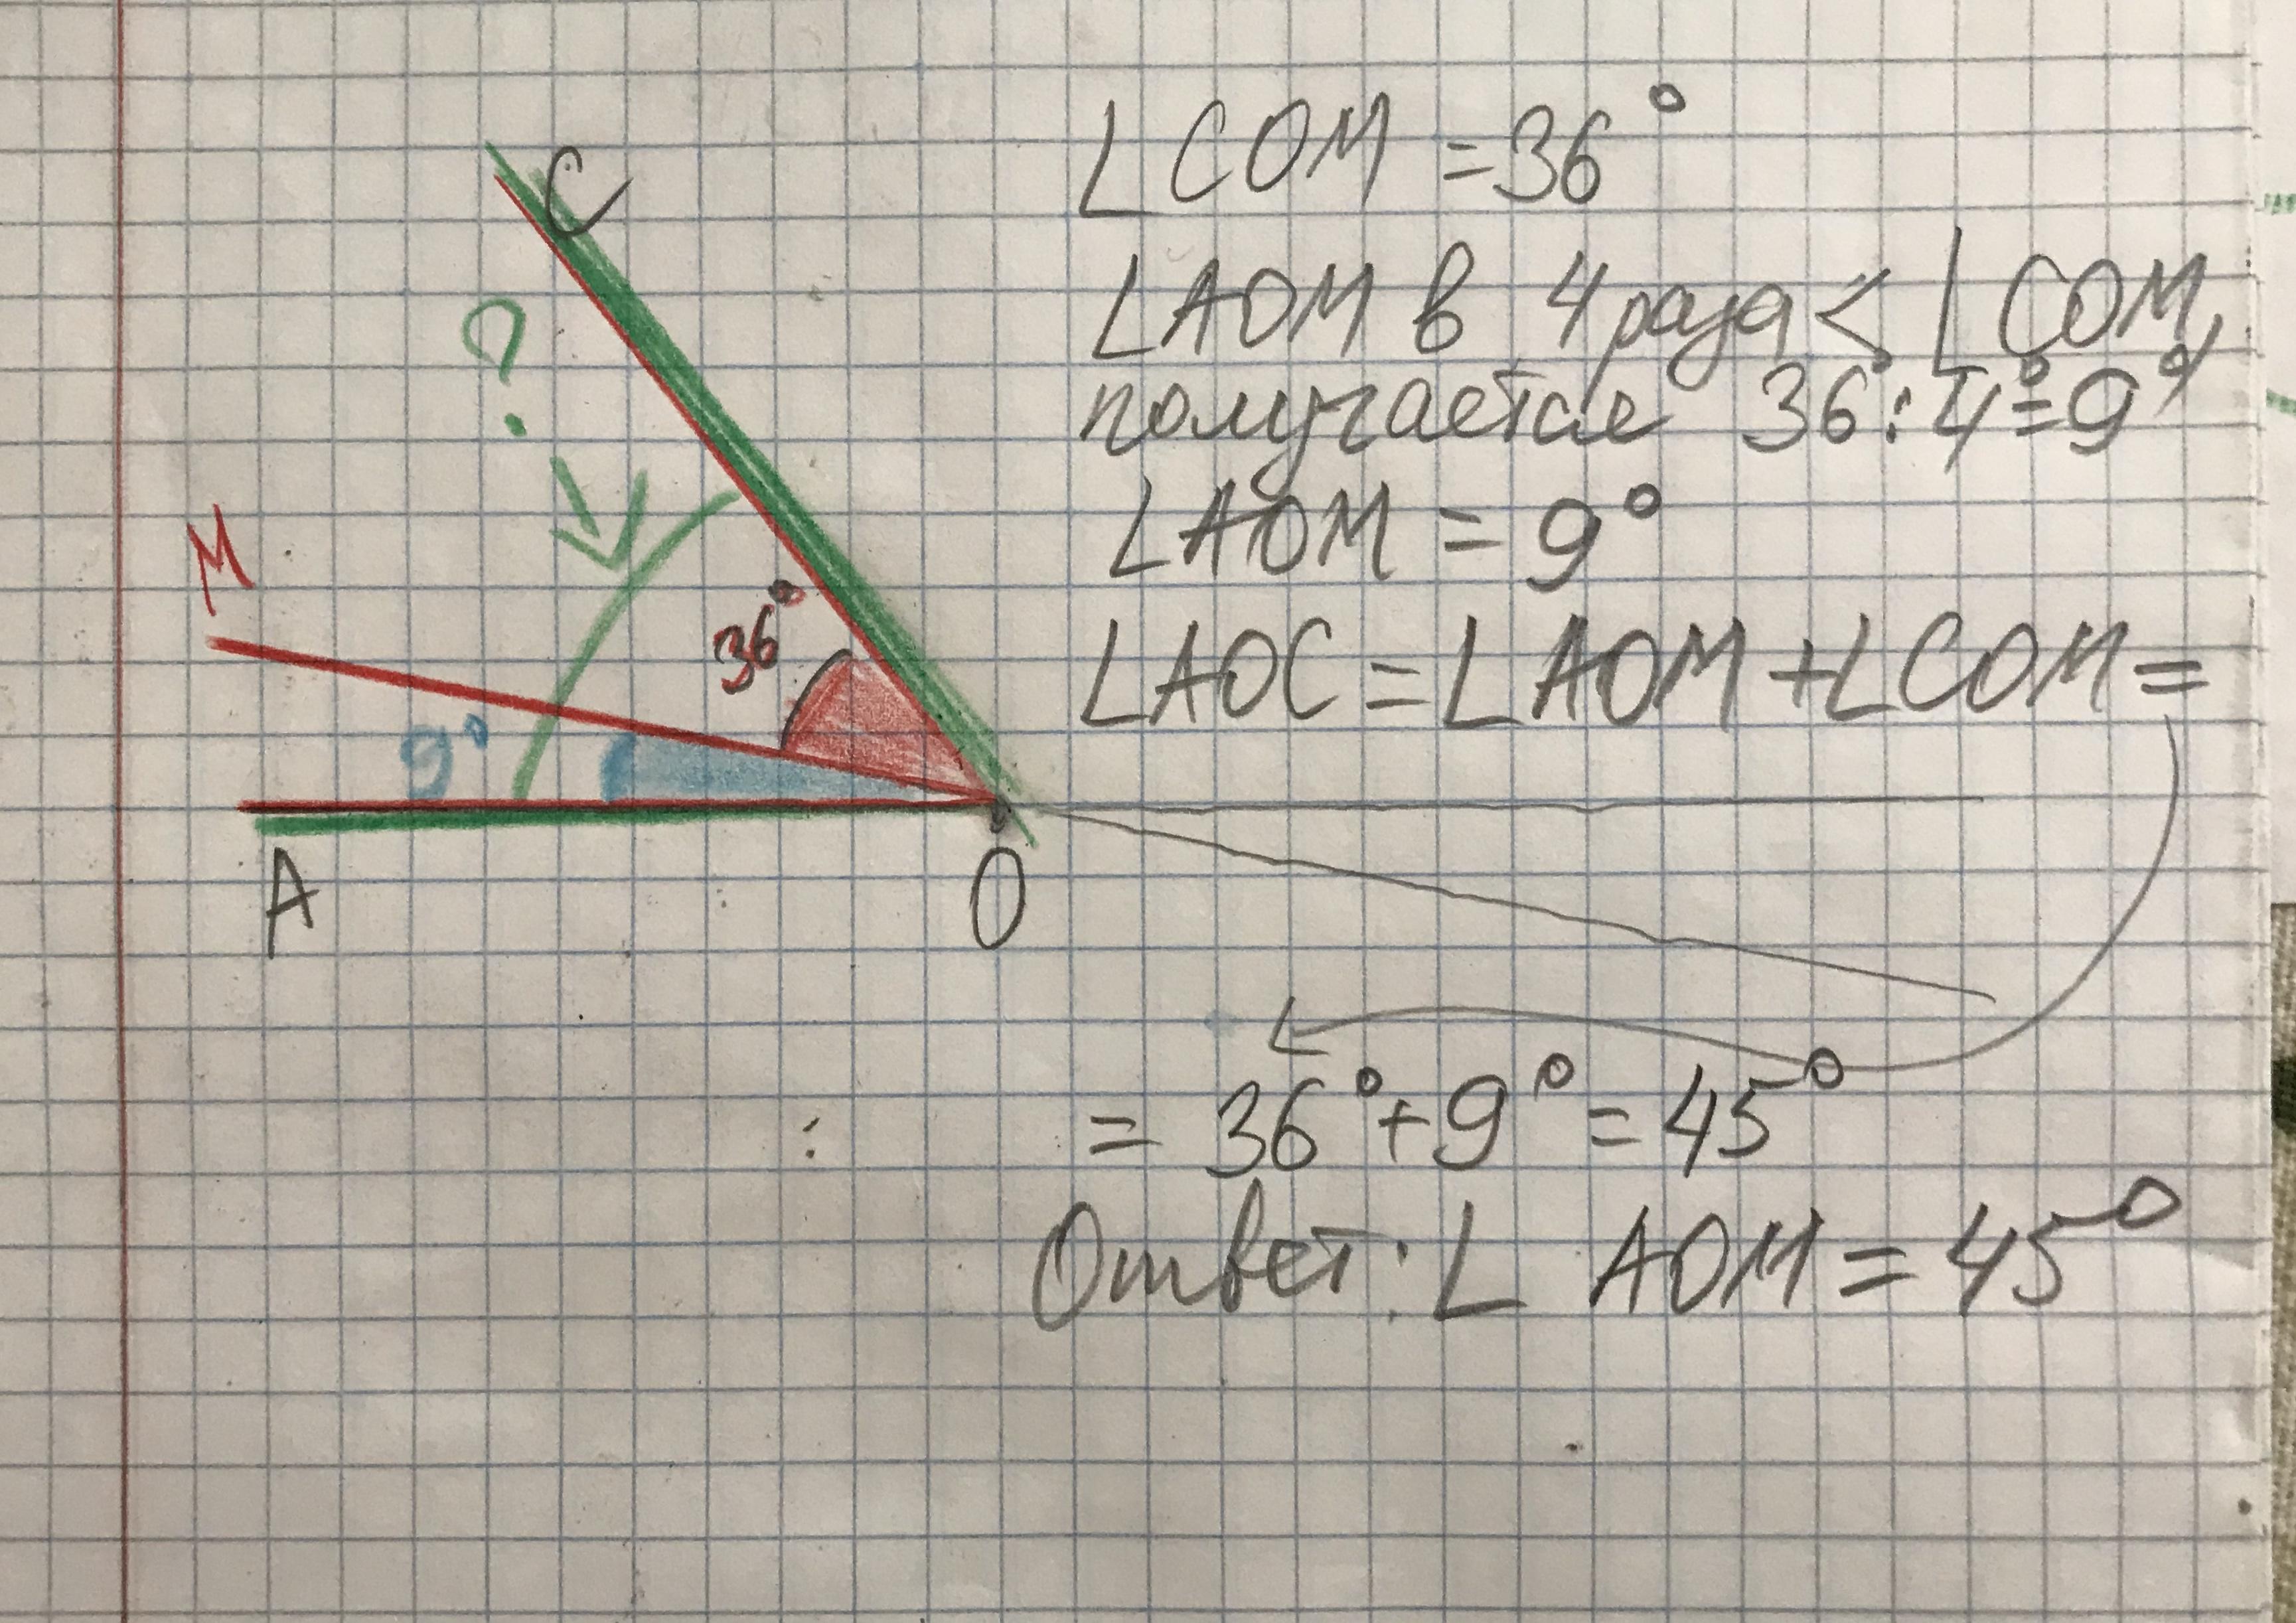 C
?
M
36°
9°
A
O
∠COM = 36°
∠AOM в 4 раза < ∠COM,
получается 36° : 4° = 9°,
∠AOM = 9°
∠AOC = ∠AOM + ∠COM =
= 36° + 9° = 45°
Ответ: ∠ AOM = 45°